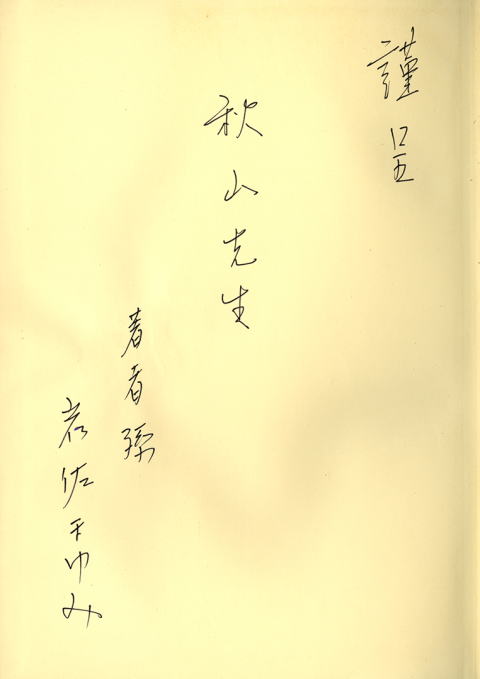 謹呈
秋山先生
著者孫
佐まゆみ